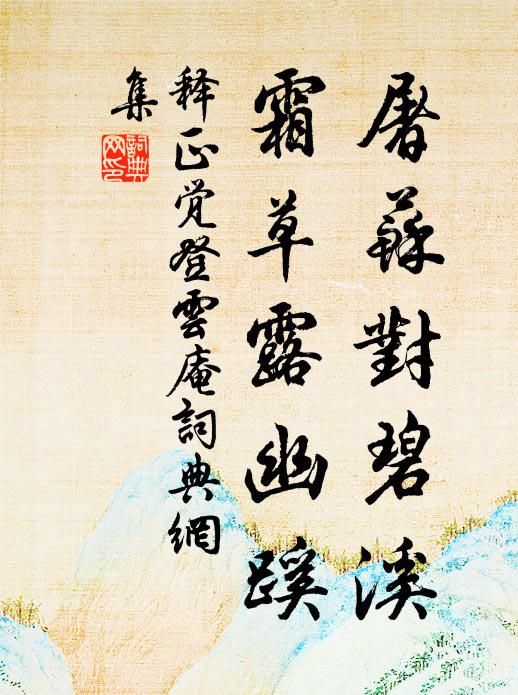 屠蘇對碧溪
霜草露幽蹊
释正觉登雲庵詞典網
集
詞典網印